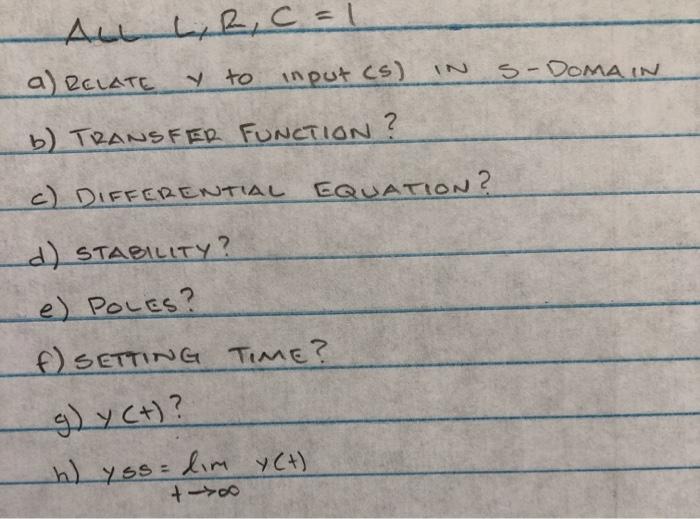 ALL L, R, C = 1
a) RELATE y to input (s) IN S-DOMAIN
b) TRANSFER FUNCTION?
c) DIFFERENTIAL EQUATION?
d) STABILITY?
e) POLES?
f) SETTING TIME?
g) y(t)?
h) yss = lim y(t)
t→∞